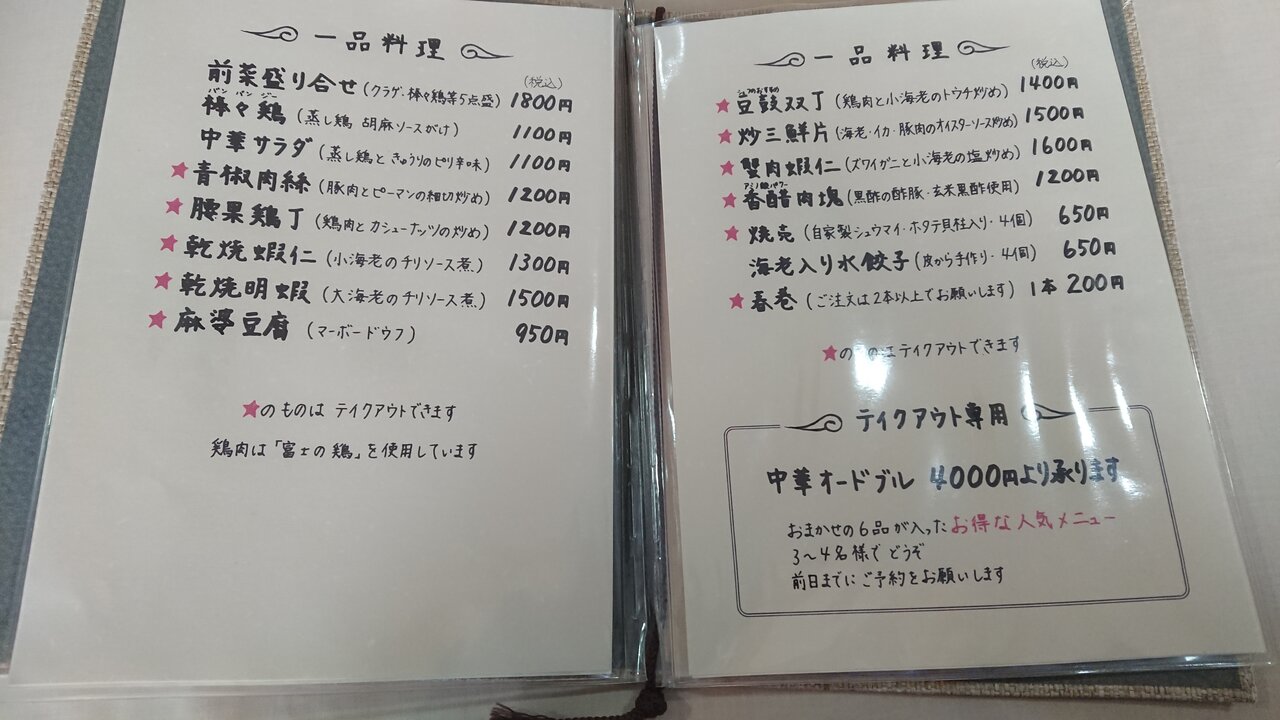 一品料理
(税込)
前菜盛り合せ(クラゲ・棒々鶏等5点盛) 1800円
バン バン ジー
棒々鶏(蒸し鶏 胡麻ソースがけ) 1100円
中華サラダ(蒸し鶏ときゅうりのピリ辛味) 1100円
★青椒肉絲(豚肉とピーマンの細切炒め) 1200円
★腰果鶏丁(鶏肉とカシューナッツの炒め) 1200円
★乾焼蝦仁(小海老のチリソース煮) 1300円
★乾焼明蝦(大海老のチリソース煮) 1500円
★麻婆豆腐(マーボードウフ) 950円
★のものは テイクアウトできます
鶏肉は「富士の鶏」を使用しています
一品料理
(税込)
シェフのおすすめ
★豆鼓双丁(鶏肉と小海老のトウチ炒め) 1400円
★炒三鮮片(海老・イカ・豚肉のオイスターソース炒め) 1500円
★蟹肉蝦仁(ズワイガニと小海老の塩炒め) 1600円
アミノ酸パワー
★香醋肉塊(黒酢の酢豚・玄米黒酢使用) 1200円
★焼売(自家製シュウマイ・ホタテ貝柱入り・4個) 650円
海老入り水餃子(皮から手作り・4個) 650円
★春巻(ご注文は2本以上でお願いします) 1本 200円
★のものはテイクアウトできます
テイクアウト専用
中華オードブル 4000円より承ります
おまかせの6品が入ったお得な人気メニュー
3〜4名様でどうぞ
前日までにご予約をお願いします